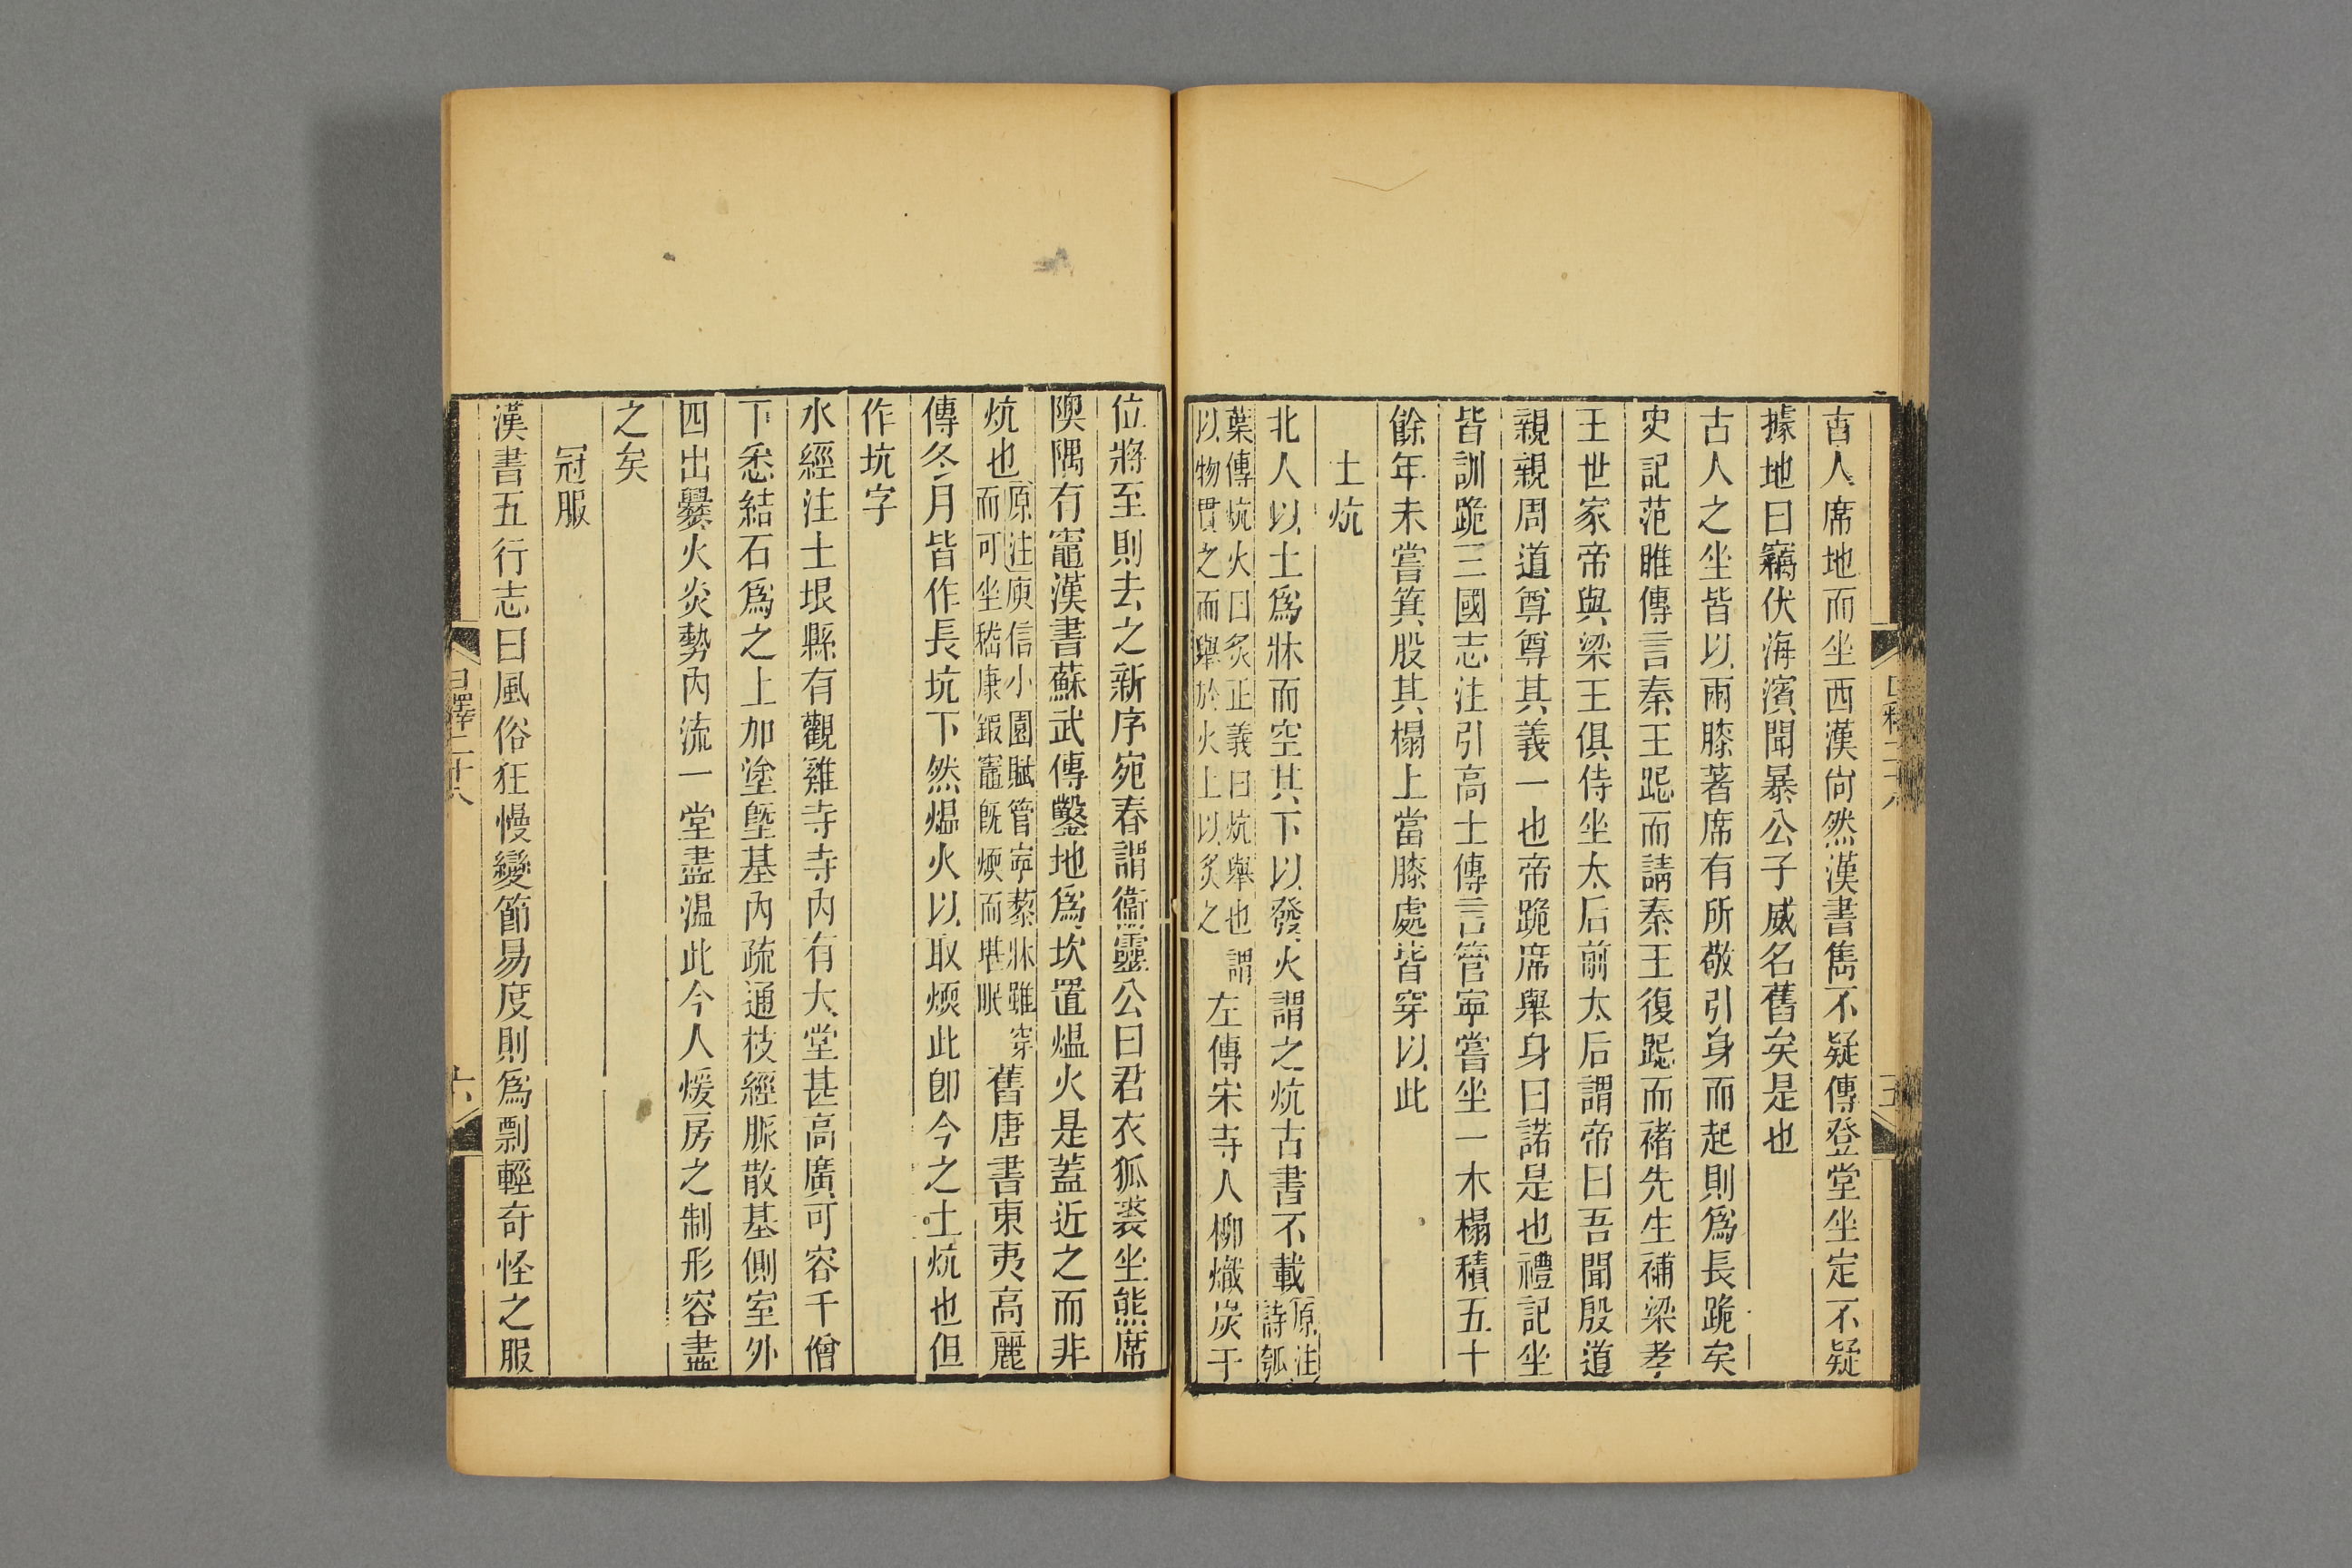 古人席地而坐西漢尙然漢書雋不疑傳登堂坐定不疑
據地曰竊伏海濱聞暴公子威名舊矣是也
古人之坐皆以兩膝著席有所敬引身而起則爲長跪矣
史記范睢傳言秦王跽而請秦王復跽而褚先生補梁孝
王世家帝與梁王俱侍坐太后前太后謂帝曰吾聞殷道
親親周道尊尊其義一也帝跪席舉身曰諾是也禮記坐
皆訓跪三國志注引高士傳言管寧嘗坐一木榻積五十
餘年未嘗箕股其榻上當膝處皆穿以此
土炕
北人以土爲牀而空其下以發火謂之炕古書不載原注詩瓠
葉傳炕火曰炙正義曰炕舉也謂以物貫之而舉於火上以炙之左傳宋寺人柳熾炭于
位將至則去之新序宛春謂衞靈公曰君衣狐裘坐熊席
隩隅有竈漢書蘇武傳鑿地爲坎置熅火是蓋近之而非
炕也原注庾信小園賦管寧藜牀雖穿而可坐嵇康鍛竈旣煗而堪眠舊唐書東夷高麗
傳冬月皆作長坑下然熅火以取煗此卽今之土炕也但
作坑字
水經注土垠縣有觀雞寺寺內有大堂甚高廣可容千僧
下悉結石爲之上加塗墍基內疏通枝經脈散基側室外
四出爨火炎勢內流一堂盡温此今人煖房之制形容盡
之矣
冠服
漢書五行志曰風俗狂慢變節易度則爲剽輕奇怪之服
日釋二十八
六